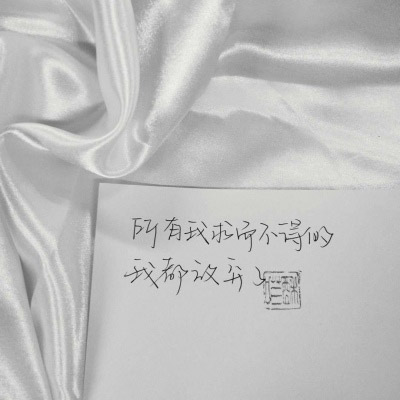 所有我求而不得的
我都放弃了